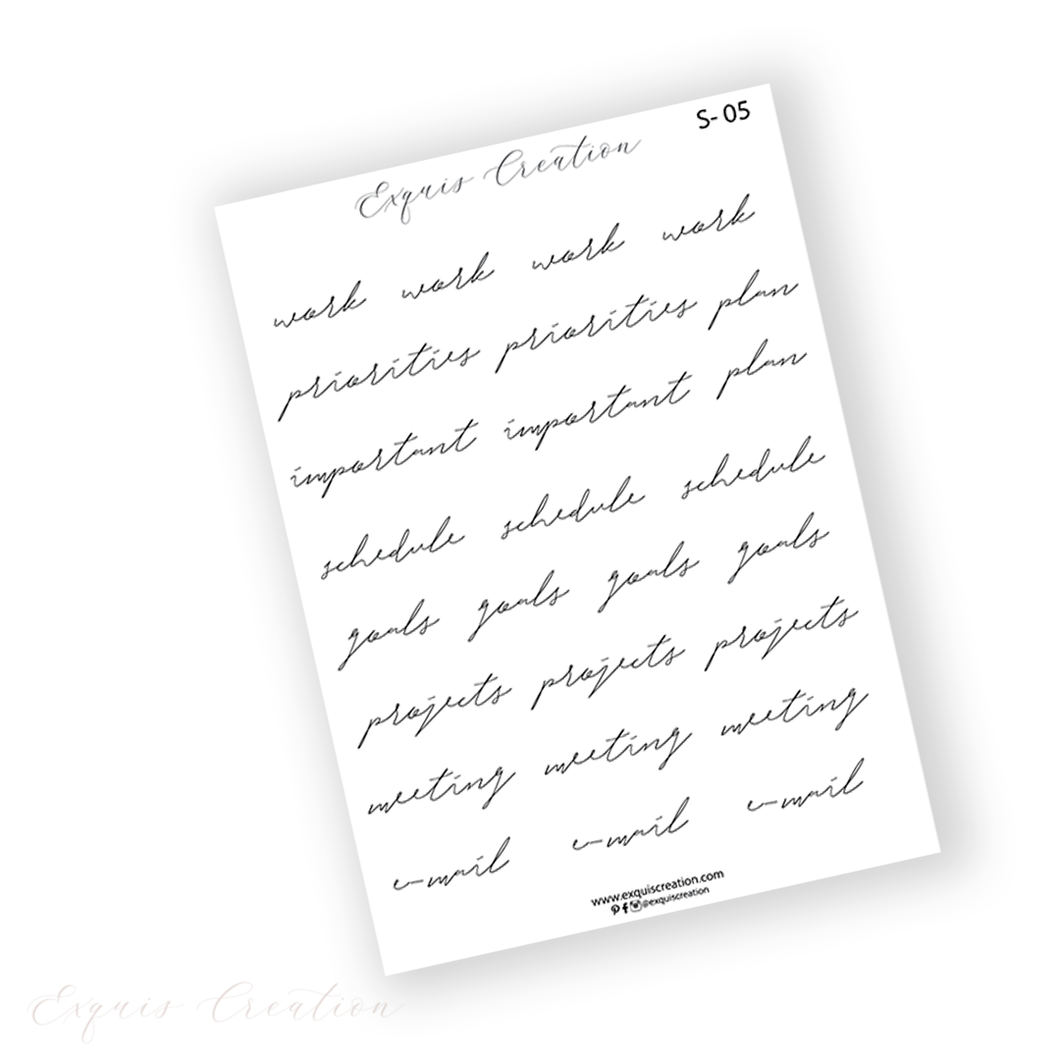 S- 05
Exquis Creation
work work work work
priorities priorities plan
important important plan
schedule schedule schedule
goals goals goals goals
projects projects projects
meeting meeting meeting
e-mail e-mail e-mail
www.exquiscreation.com
@exquiscreation
Exquis Creation